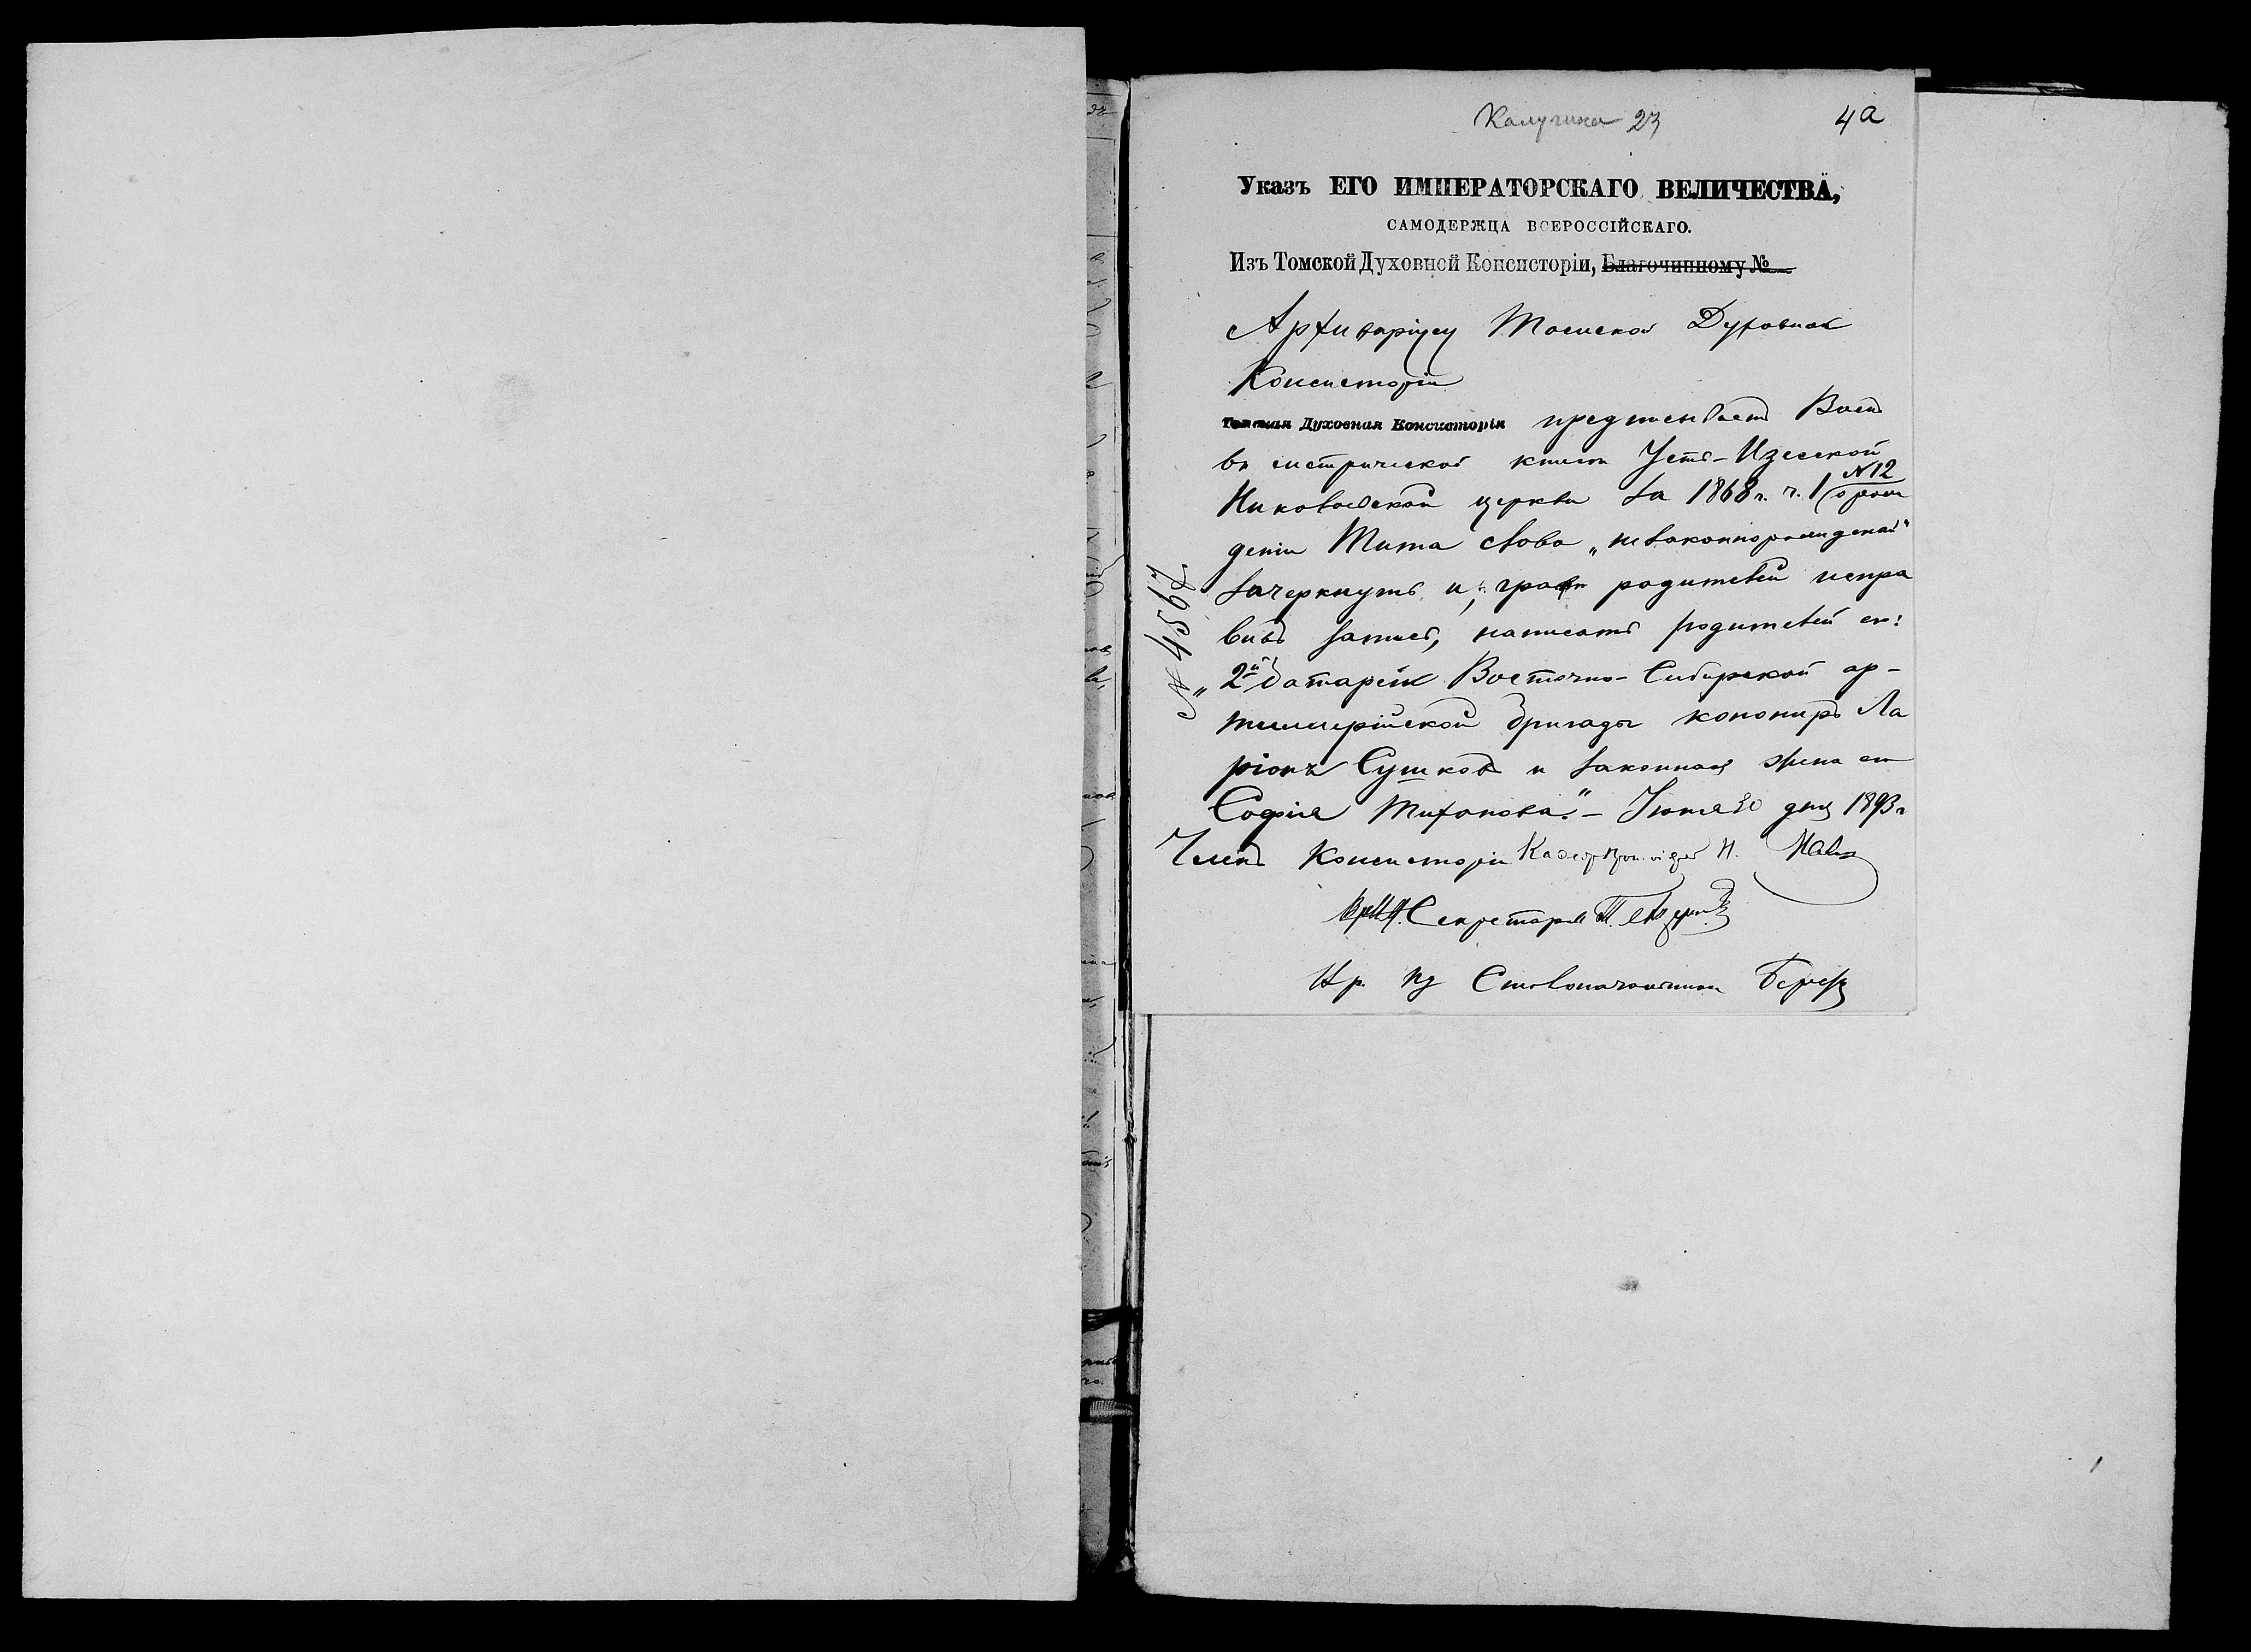 Калугина 23
4а
Указъ ЕГО ИМПЕРАТОРСКАГО ВЕЛИЧЕСТВА,
САМОДЕРЖЦА ВСЕРОССІЙСКАГО.
Изъ Томской Духовной Консисторіи, Благочинному №
Архиваріусу Томской Духовной
Консисторіи
Томская Духовная Консисторія предписываетъ Вамъ
въ метрической книгѣ Усть-Изесской
Николаевской церкви за 1868 г. ч. 1 № 12 о рож
деніи Тита слово „незаконнорожденый"
зачеркнуть и, въ графѣ родителей испра
вивъ запись, написать родителей его:
„2й батареи Восточно-Сибирской ар-
тиллерійской бригады канониръ Ла
ріонъ Сушковъ и законная жена его
Софія Тихонова". - Іюня 30 дня 1893 г
№ 4567.
Членъ Консисторіи
Секретарь
Столоначальника